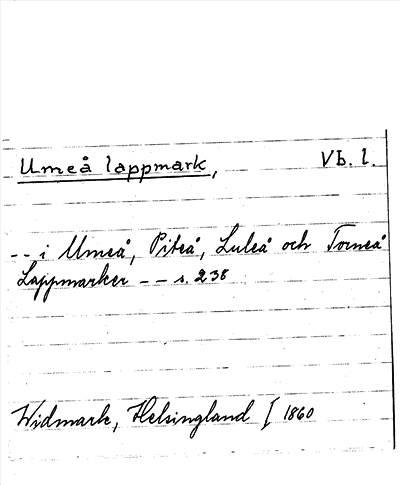 Umeå lappmark, Vb. l.
-- i Umeå, Piteå, Luleå och Torneå
Lappmarker -- s. 238
Widmark, Helsingland I 1860